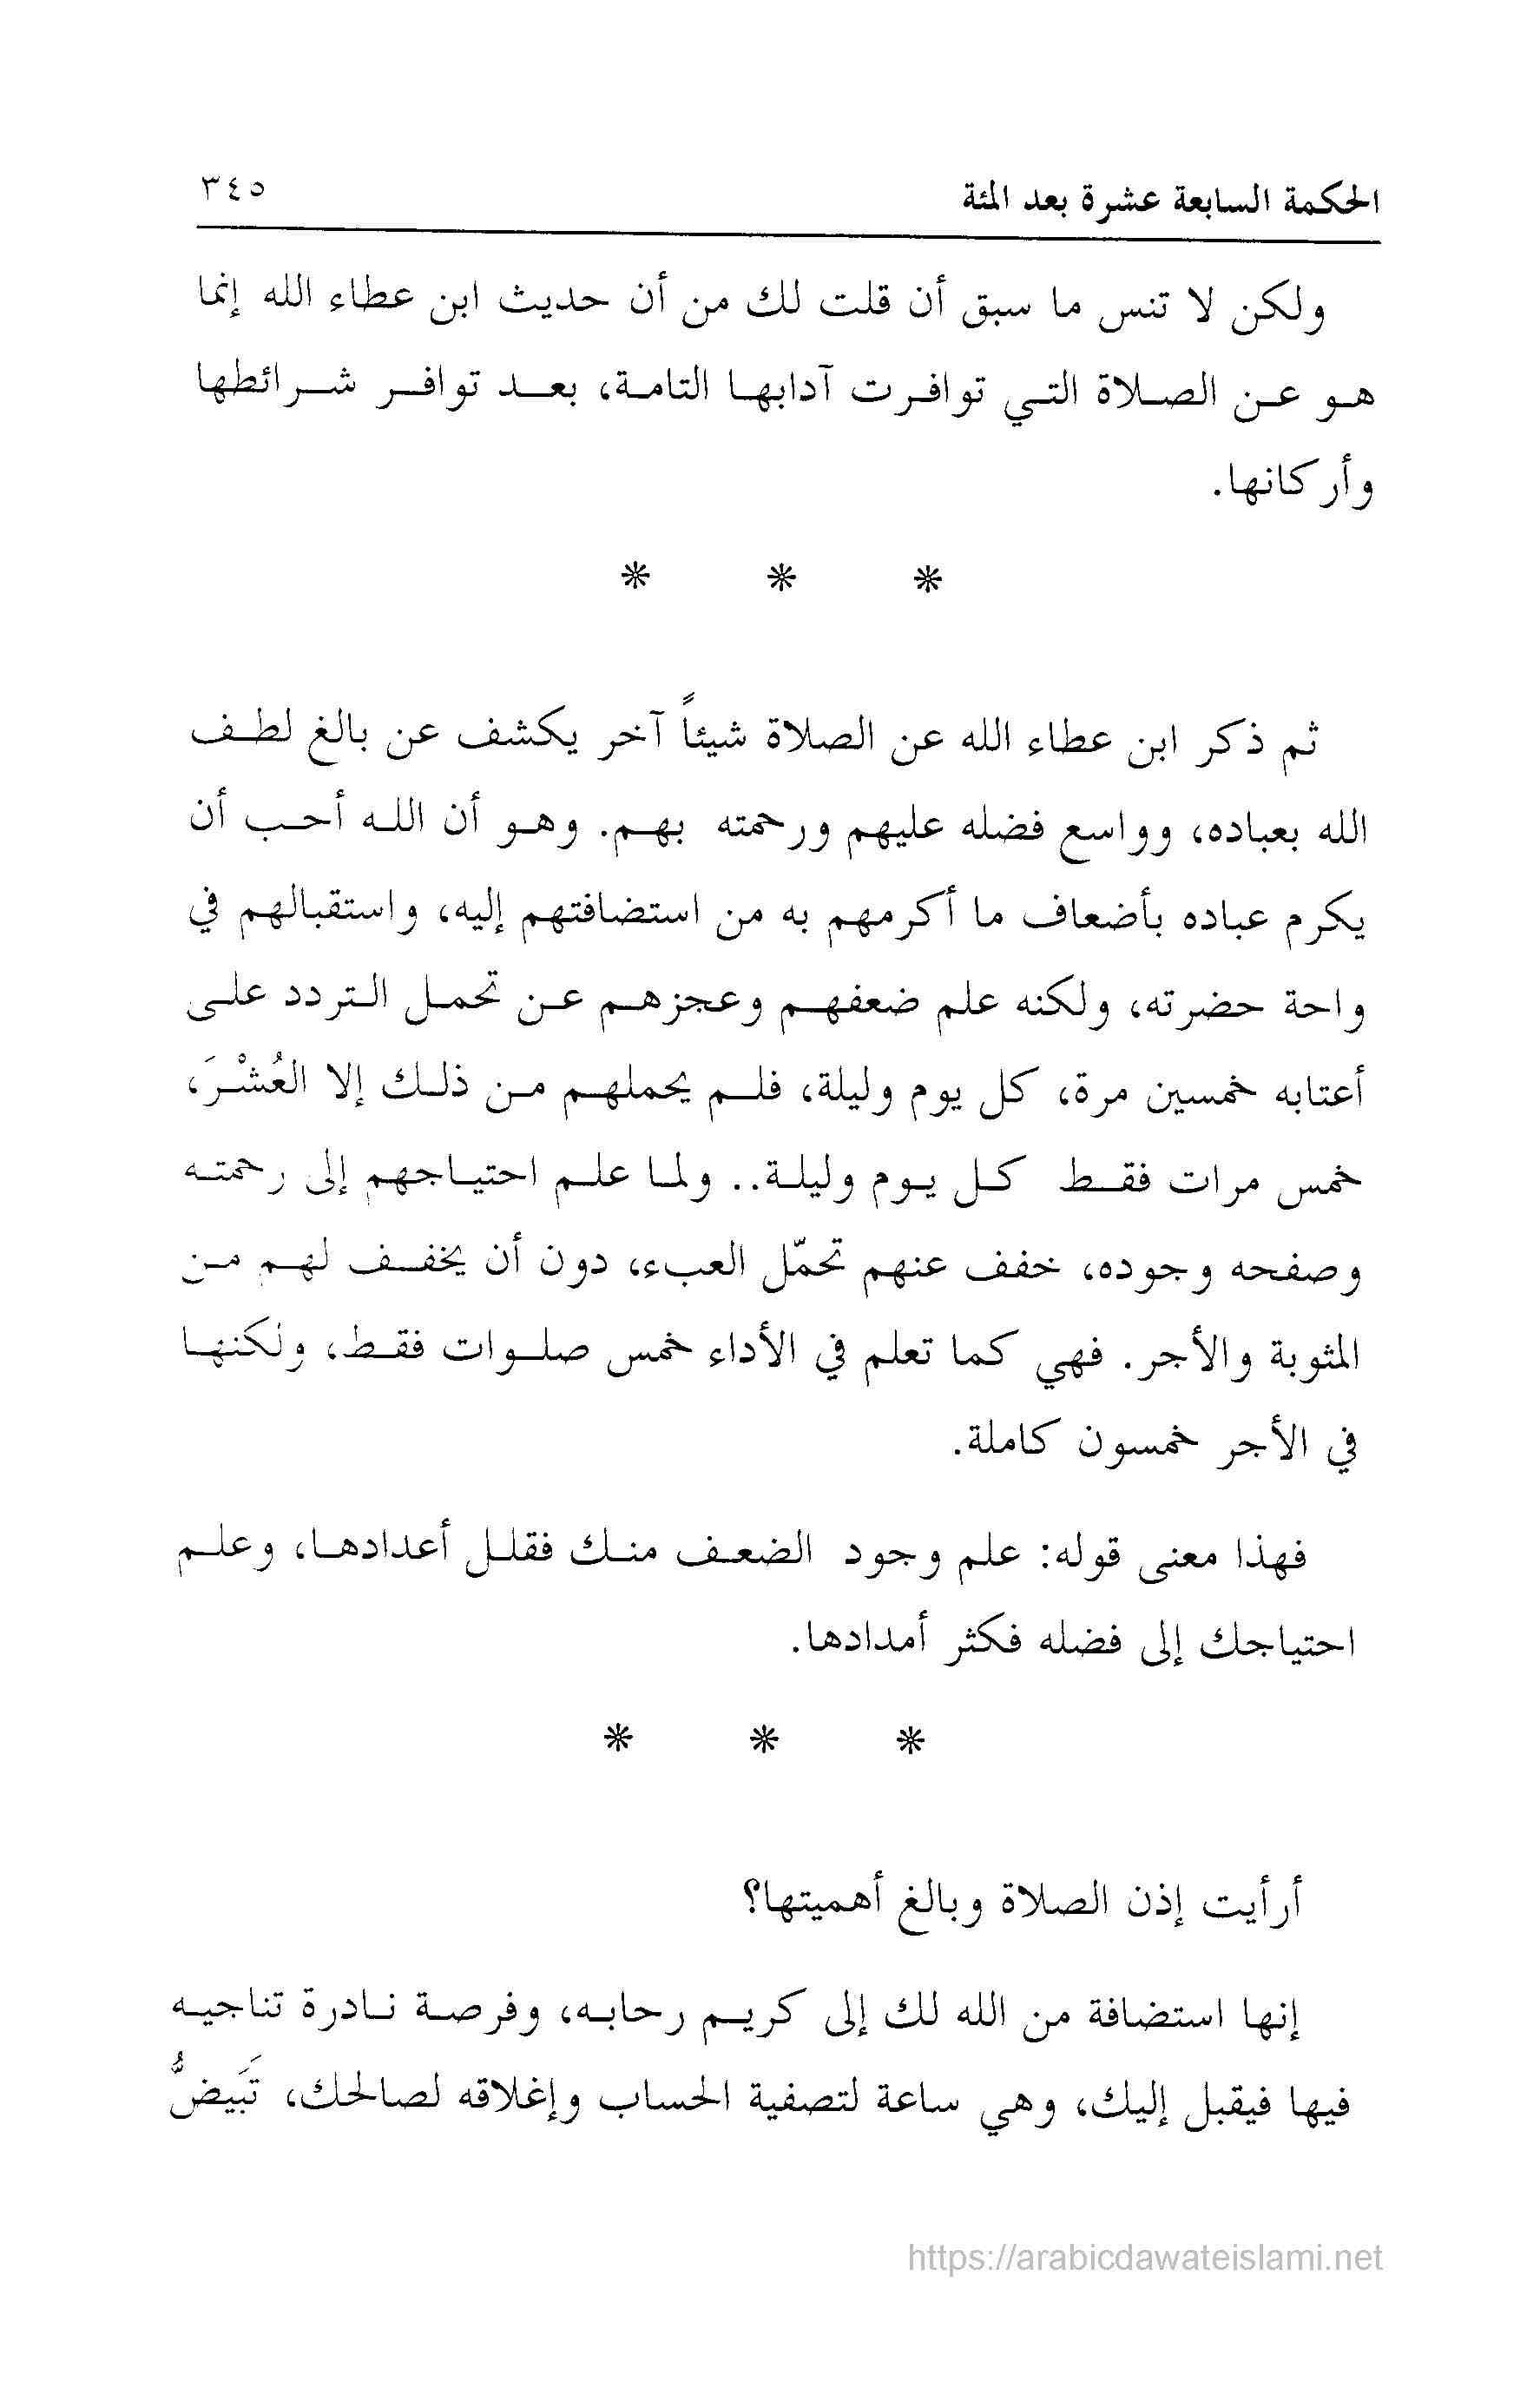 الحكمة السابعة عشرة بعد المئة ٣٤٥
ولكن لا تنس ما سبق أن قلت لك من أن حديث ابن عطاء الله إنما
هو عن الصلاة التي توافرت آدابها التامة، بعد توافر شرائطها
وأركانها.
* * *
ثم ذكر ابن عطاء الله عن الصلاة شيئاً آخر يكشف عن بالغ لطف
الله بعباده، وواسع فضله عليهم ورحمته بهم. وهو أن الله أحب أن
يكرم عباده بأضعاف ما أكرمهم به من استضافتهم إليه، واستقبالهم في
واحة حضرته، ولكنه علم ضعفهم وعجزهم عن تحمل التردد على
أعتابه خمسين مرة، كل يوم وليلة، فلم يحملهم من ذلك إلا العُشْرَ،
خمس مرات فقط كل يوم وليلة.. ولما علم احتياجهم إلى رحمته
وصفحه وجوده، خفف عنهم تحمّل العبء، دون أن يخفف لهم من
المثوبة والأجر. فهي كما تعلم في الأداء خمس صلوات فقط، ولكنها
في الأجر خمسون كاملة.
فهذا معنى قوله: علم وجود الضعف منك فقلل أعدادها، وعلم
احتياجك إلى فضله فكثر أمدادها.
* * *
أرأيت إذن الصلاة وبالغ أهميتها؟
إنها استضافة من الله لك إلى كريم رحابه، وفرصة نادرة تناجيه
فيها فيقبل إليك، وهي ساعة لتصفية الحساب وإغلاقه لصالحك، تَبَيضُّ
https://arabicdawateislami.net